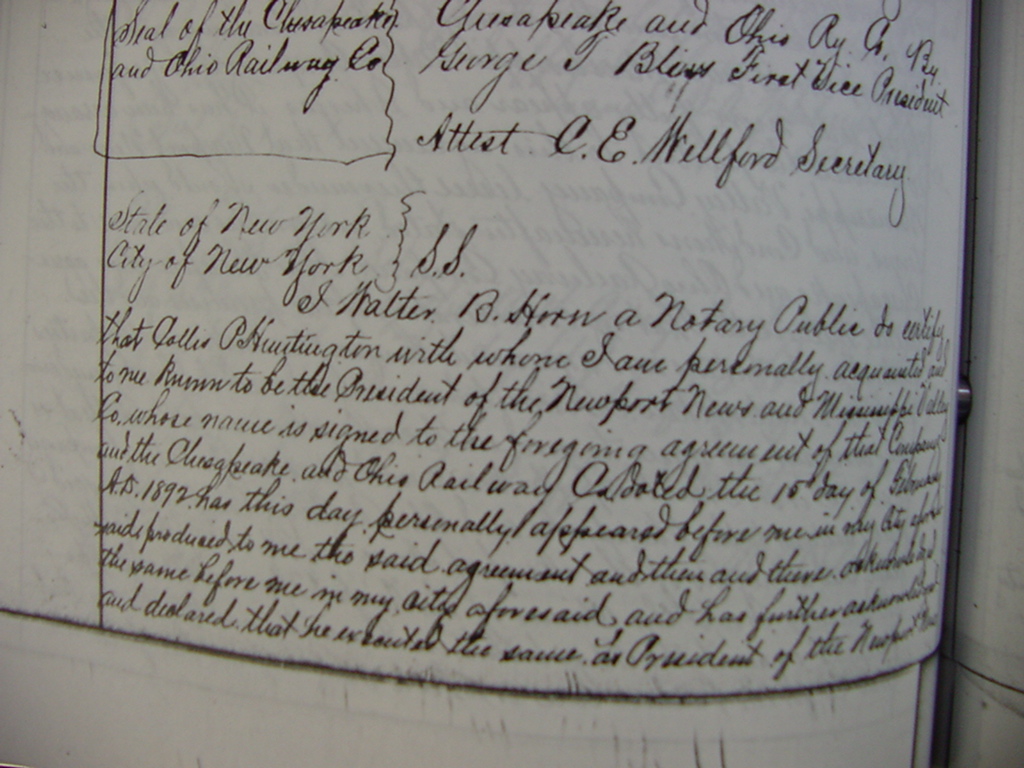 Seal of the Chesapeake
and Ohio Railway Co
Chesapeake and Ohio Ry. Co. By
George T Bliss First Vice President
Attest C. E. Wellford Secretary
State of New York
City of New York
S.S.
I Walter B. Horn a Notary Public do certify
that Collis P. Huntington with whome I am personally acquainted and
to me known to be the President of the Newport News and Mississippi Valley
Co. whose name is signed to the foregoing agreement of that Company
and the Chesapeake and Ohio Railway Co. dated the 15 day of February
A.D. 1892 has this day personally appeared before me in my City afore
said produced to me the said agreement and then and there acknowledged
the same before me in my city aforesaid and has further acknowledged
and declared that he executed the same as President of the Newport News